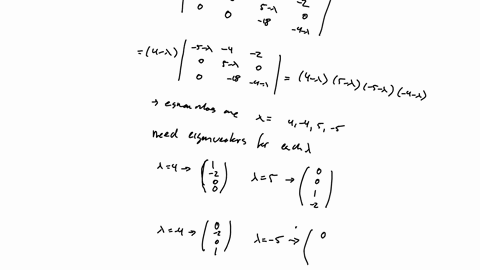 -2
0 0 5-λ 0
0 -18 -4-λ
= (4-λ) | -5-λ -4 -2
0 5-λ 0
0 -18 -4-λ | = (4-λ)(5-λ)(-5-λ)(-4-λ)
→ eigenvalues are λ = 4, -4, 5, -5
need eigenvectors for each λ
λ=4 → ( 1 -2 0 0 ) λ=5 → ( 0 0 1 -2 )
λ=-4 → ( 0 -2 0 1 ) λ=-5 → ( 0